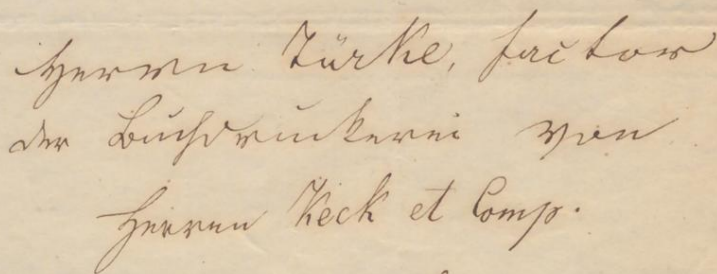 Herrn Türke, factor
der Buchdruckerei von
Herren Keck et Comp.